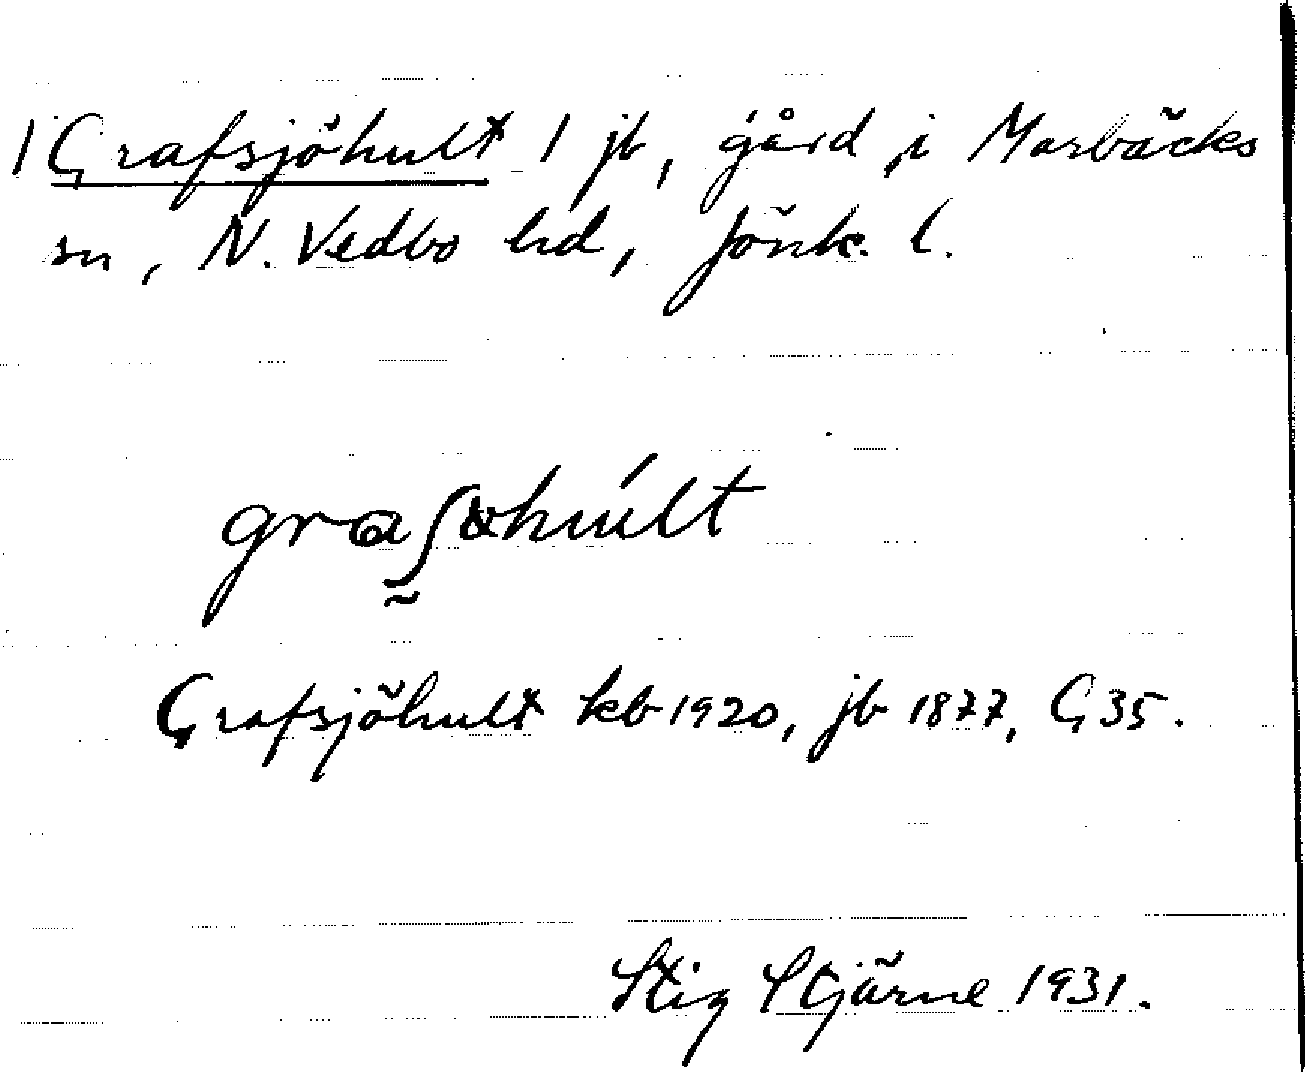 /Grafsjöhult/ jb, gård i Marbäcks
sn, N. Vedbo hd, Jönk. l.
Grafsjöhult kb 1920, jb 1877, G 35.
Stig Stjärne 1931.